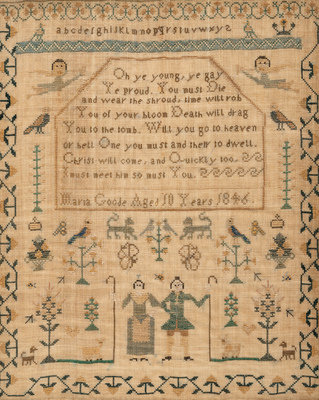 abcdefghIJKLmnopqrstuvwxyz
Oh ye young, ye gay
Ye proud. You must Die
and wear the shroud, time will rob
You of your bloom Death will drag
You to the tomb. Will you go to heaven
or hell One you must and their to dwell.
Christ will come, and Quickly too.
I must meet him so must You.
Maria Goode Aged 10 Years 1846